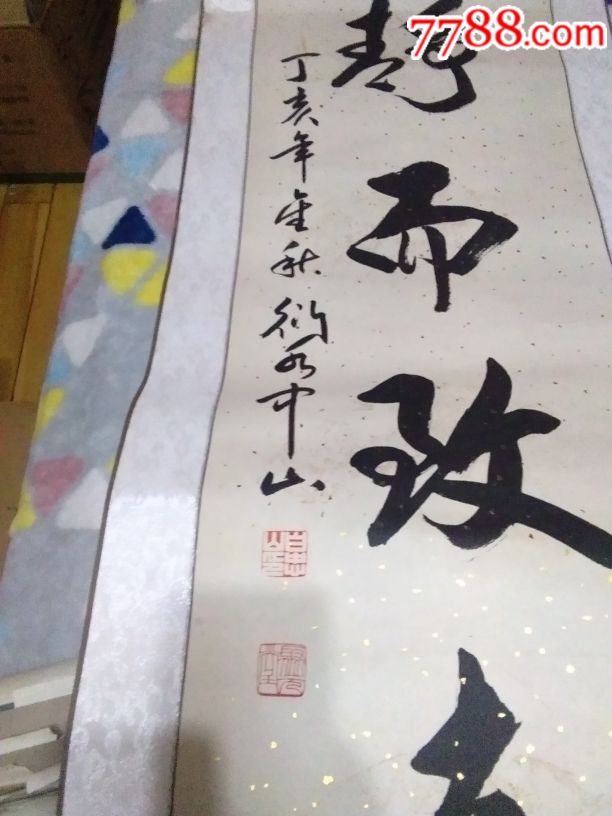 7788.com
静而致
丁亥年金秋衍水中山